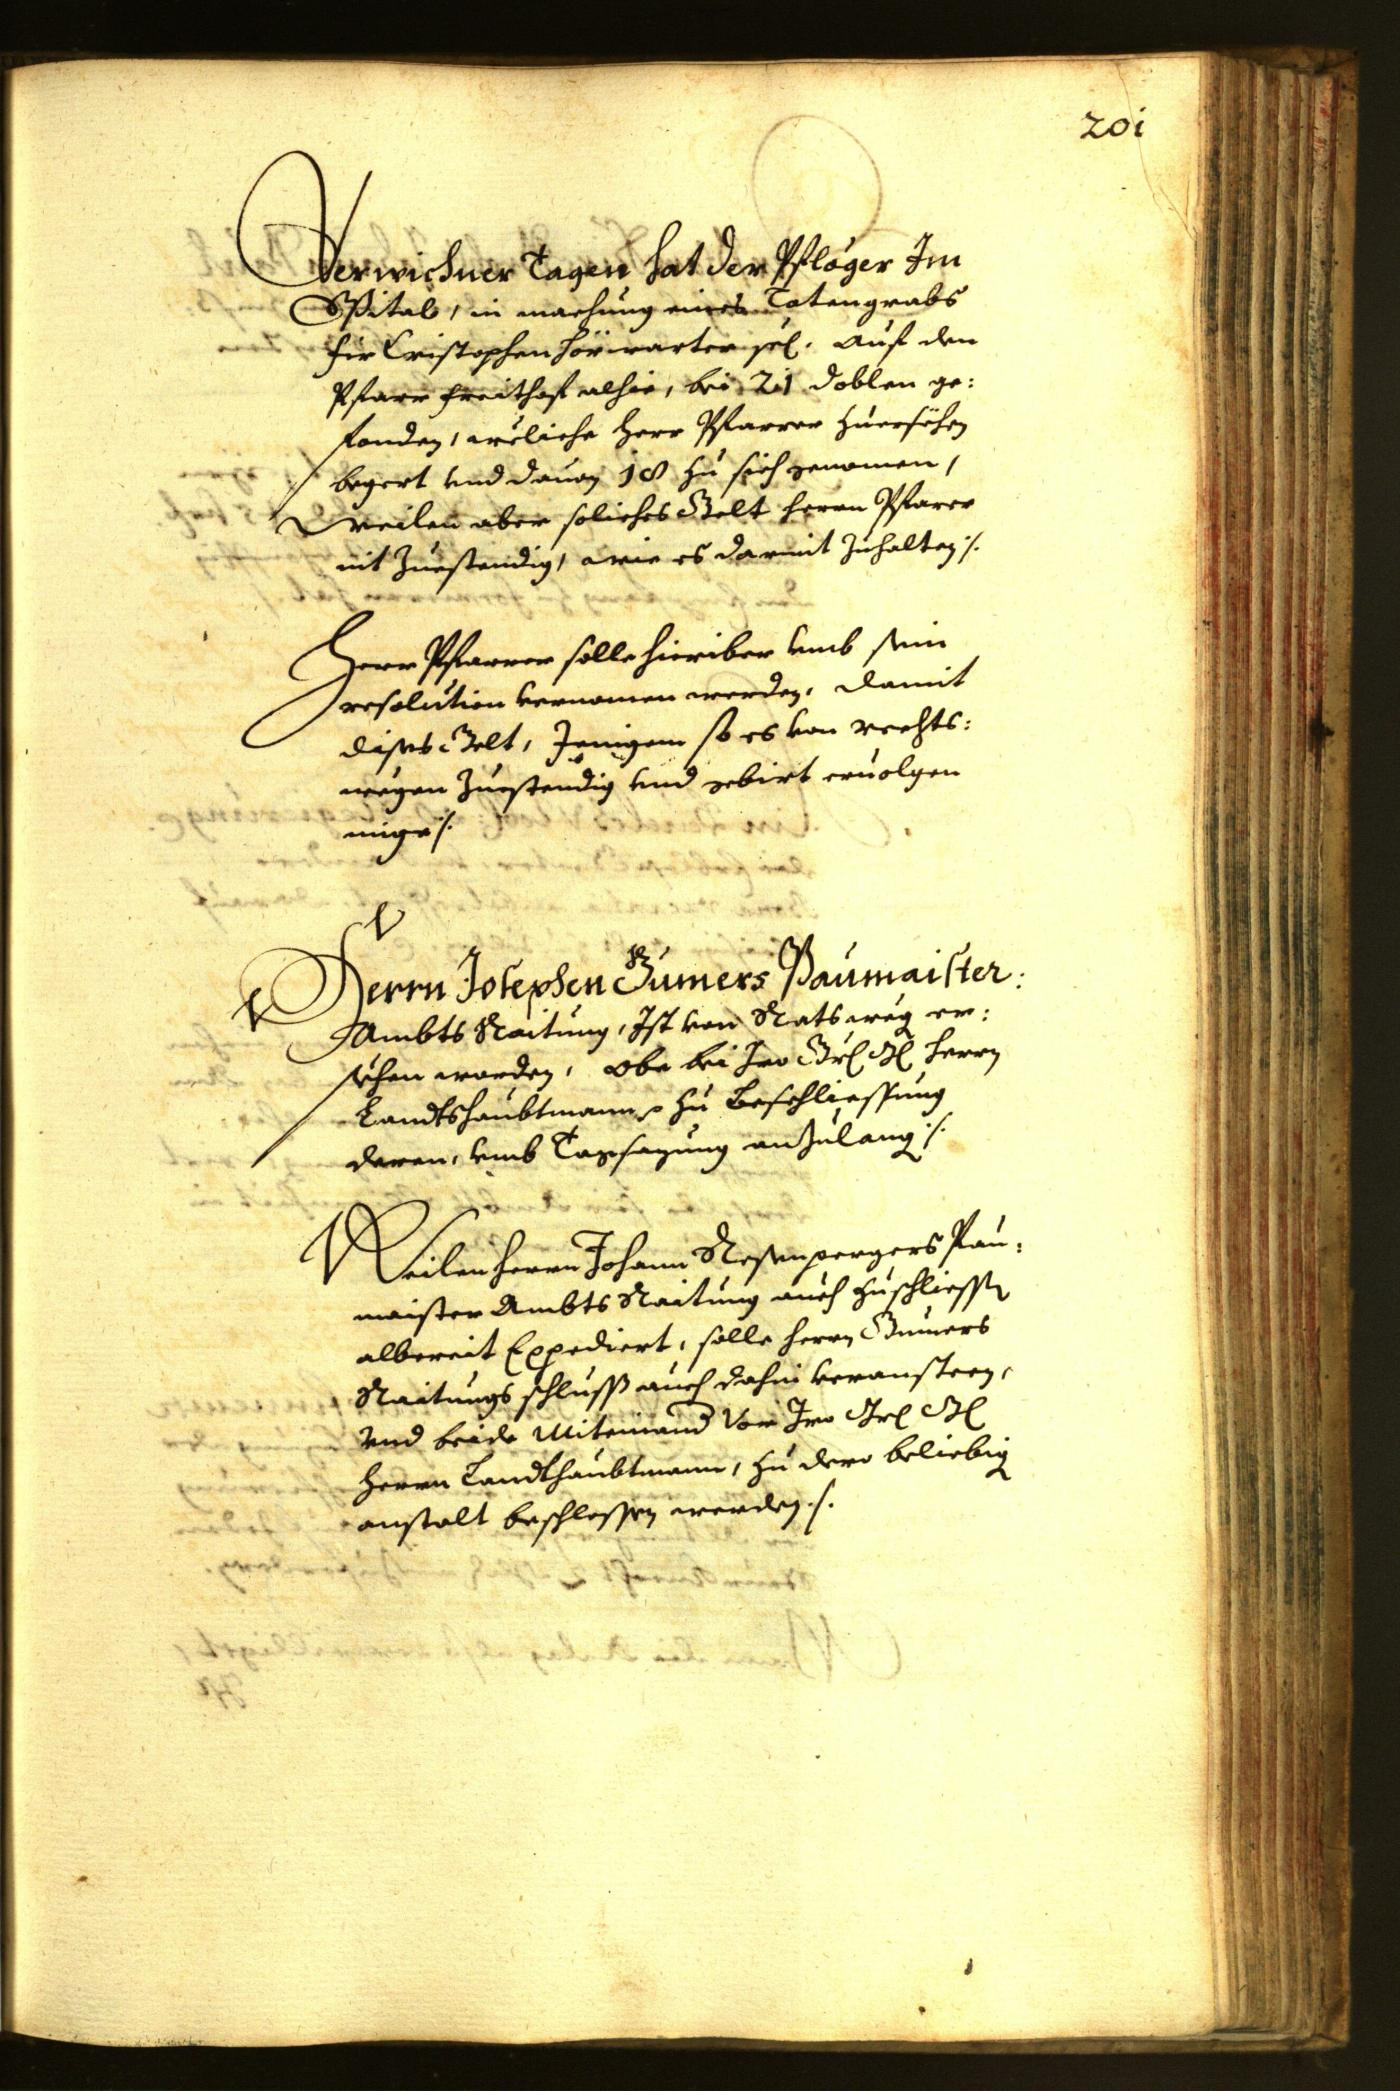 201
Verwichner Tagen hat der Pfloger Im
Spital, in machung eines Totengrabs
fir Cristophen Hörwarter sel. auf den
Pfarr freithof alhie, bei 21 doblen ge:
fonden, weliche Herr Pfarrer zuersehen
begert vnd dauon 18 zu sich genomen,
weilen aber soliches Gelt herrn Pfarrer
nit Zuestendig, wie es darmit Zuhalten ./.
Herr Pfarrer solle hieriber vmb sein
resolution vernomen werden, damit
dises Gelt, Jenigem so es von rechts:
wegen Zuestendig vnd gebirt eruolgen
mige ./.
Herrn Josephen Gumers Paumaister:
Ambts Raitung, Ist von Rats weg er:
sehen worden, obe bei Iro Grl Gl herrn
Landtshaubtmann zu Beschliessung
deren, vmb Tagsazung anzulang ./.
Weilen herrn Johann Resenpergers Pau:
maister Ambts Raitung auch zuschliessen
albereit Expediert, solle herrn Gumers
Raitungs schluss auch dahin veransteen,
vnd beide Miteinand Vor Iro Grl Gl
Herrn Landthaubtmann, zu dero beliebig
anstalt beschlossen werden ./.